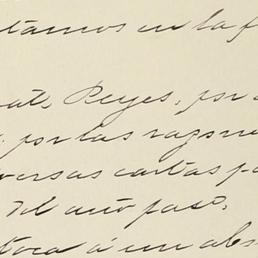 tamos en la f
ate Reyes, por
por las razone
versas cartas pa
del año pasº,
toca á un abs